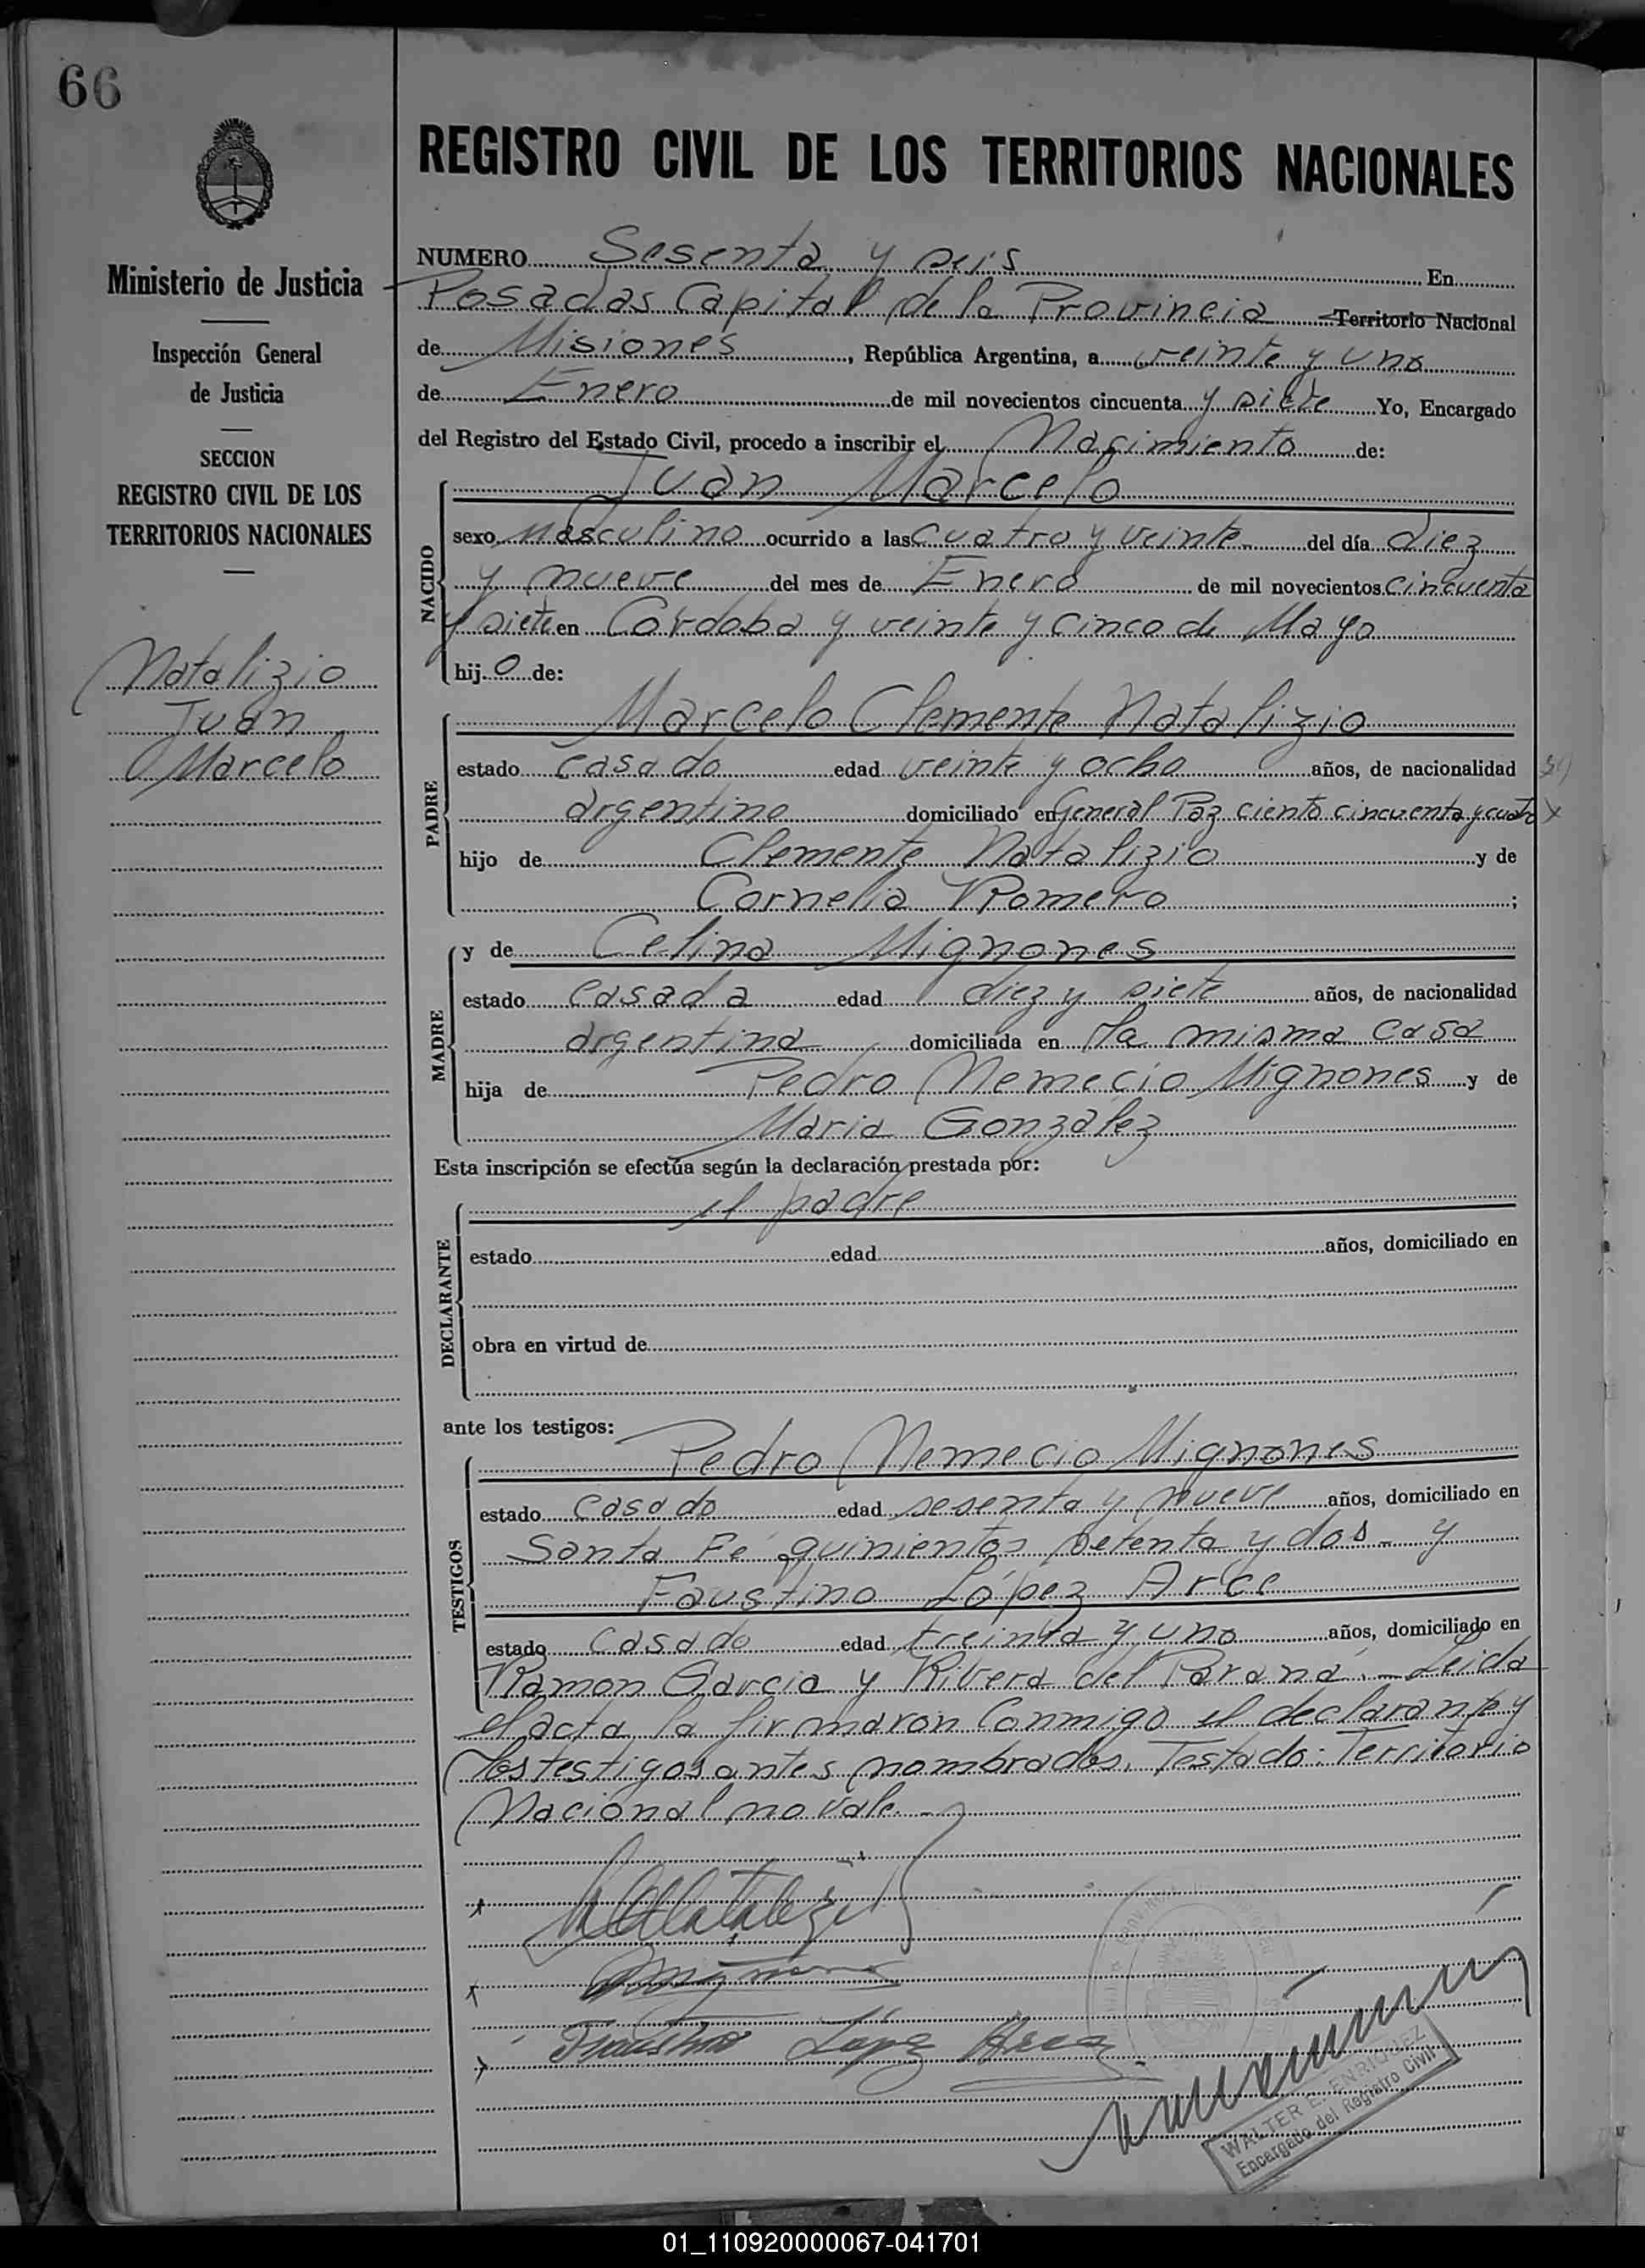 66
Ministerio de Justicia
Inspección General
de Justicia
SECCION
REGISTRO CIVIL DE LOS
TERRITORIOS NACIONALES
Natalizio
Juan
Marcelo
REGISTRO CIVIL DE LOS TERRITORIOS NACIONALES
NUMERO Sesenta y seis En
Posadas Capital de la Provincia Territorio Nacional
de Misiones, República Argentina, a veinte y uno
de Enero de mil novecientos cincuenta y siete Yo, Encargado
del Registro del Estado Civil, procedo a inscribir el Nacimiento de:
NACIDO
Juan Marcelo
sexo Masculino ocurrido a las cuatro y veinte - del día diez
y nueve del mes de Enero de mil novecientos cincuenta
y siete en Córdoba y veinte y cinco de Mayo
hijo de:
PADRE
Marcelo Clemente Natalizio
estado casado edad veinte y ocho años, de nacionalidad
argentino domiciliado en General Paz ciento cincuenta y cuatro
hijo de Clemente Natalizio y de
Cornelia Romero;
MADRE
y de Celina Mignones
estado casada edad diez y siete años, de nacionalidad
argentina domiciliada en la misma casa
hija de Pedro Nemecio Mignones y de
Maria González
Esta inscripción se efectúa según la declaración prestada por:
DECLARANTE
el padre
estado edad años, domiciliado en
obra en virtud de
ante los testigos:
TESTIGOS
Pedro Nemecio Mignones
estado casado edad sesenta y nueve años, domiciliado en
Santa Fé quinientos setenta y dos - y
Faustino López Arce
estado casado edad treinta y uno años, domiciliado en
Ramon Garcia y Rivera del Paraná. - Leida
el acta, la firmaron conmigo el declarante y
los testigos antes nombrados. Testado: Territorio
Nacional no vale. -
Faustino López Arce
WALTER E. ENRIQUEZ
Encargado del Registro Civil
01_110920000067-041701